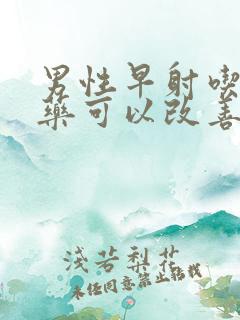 男性早射喫
藥可以改善
淺若梨花
未经同意禁止转载